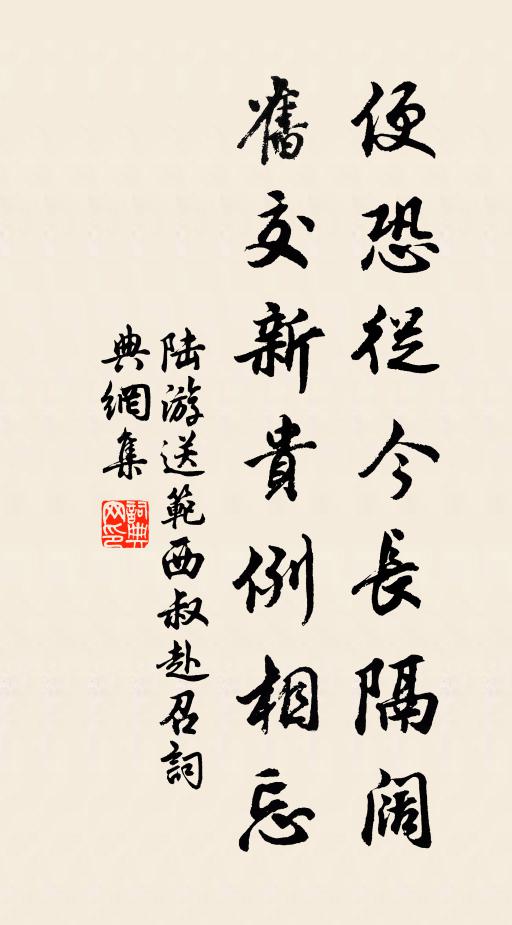 便恐從今長隔阔
舊交新貴例相忘
陆游送範西叔赴召詞
典網集
詞典网印